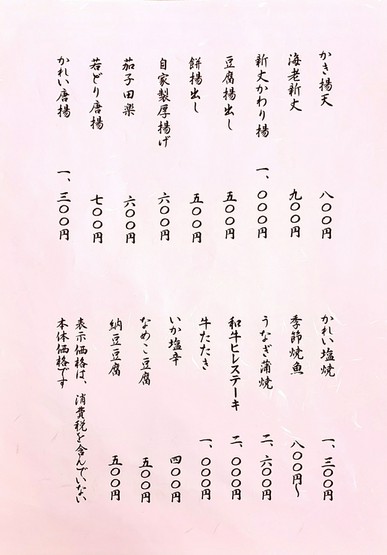 かき揚天 八〇〇円
海老新丈 九〇〇円
新丈かわり揚 一、〇〇〇円
豆腐揚出し 五〇〇円
餅揚出し 五〇〇円
自家製厚揚げ 六〇〇円
茄子田楽 六〇〇円
若どり唐揚 七〇〇円
かれい唐揚 一、三〇〇円
かれい塩焼 一、三〇〇円
季節焼魚 八〇〇円〜
うなぎ蒲焼 二、六〇〇円
和牛ヒレステーキ 二、〇〇〇円
牛たたき 一、〇〇〇円
いか塩辛 四〇〇円
なめこ豆腐 五〇〇円
納豆豆腐 五〇〇円
表示価格は、消費税を含んでいない
本体価格です